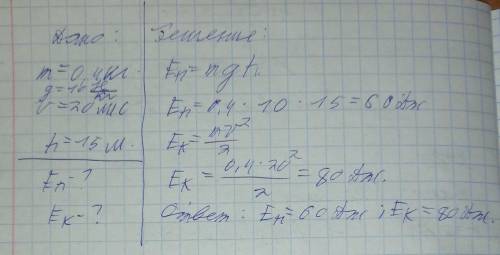 Дано:
m=0,4кг
g=10 Н/кг
v=20 м/с
h=15 м.
Eп-?
Eк-?
Решение:
Eп=mgh
Eп=0,4·10·15=60 Дж
Eк=mv²/2
Eк=0,4·20²/2=80 Дж.
Ответ: Eп=60 Дж; Eк=80 Дж.